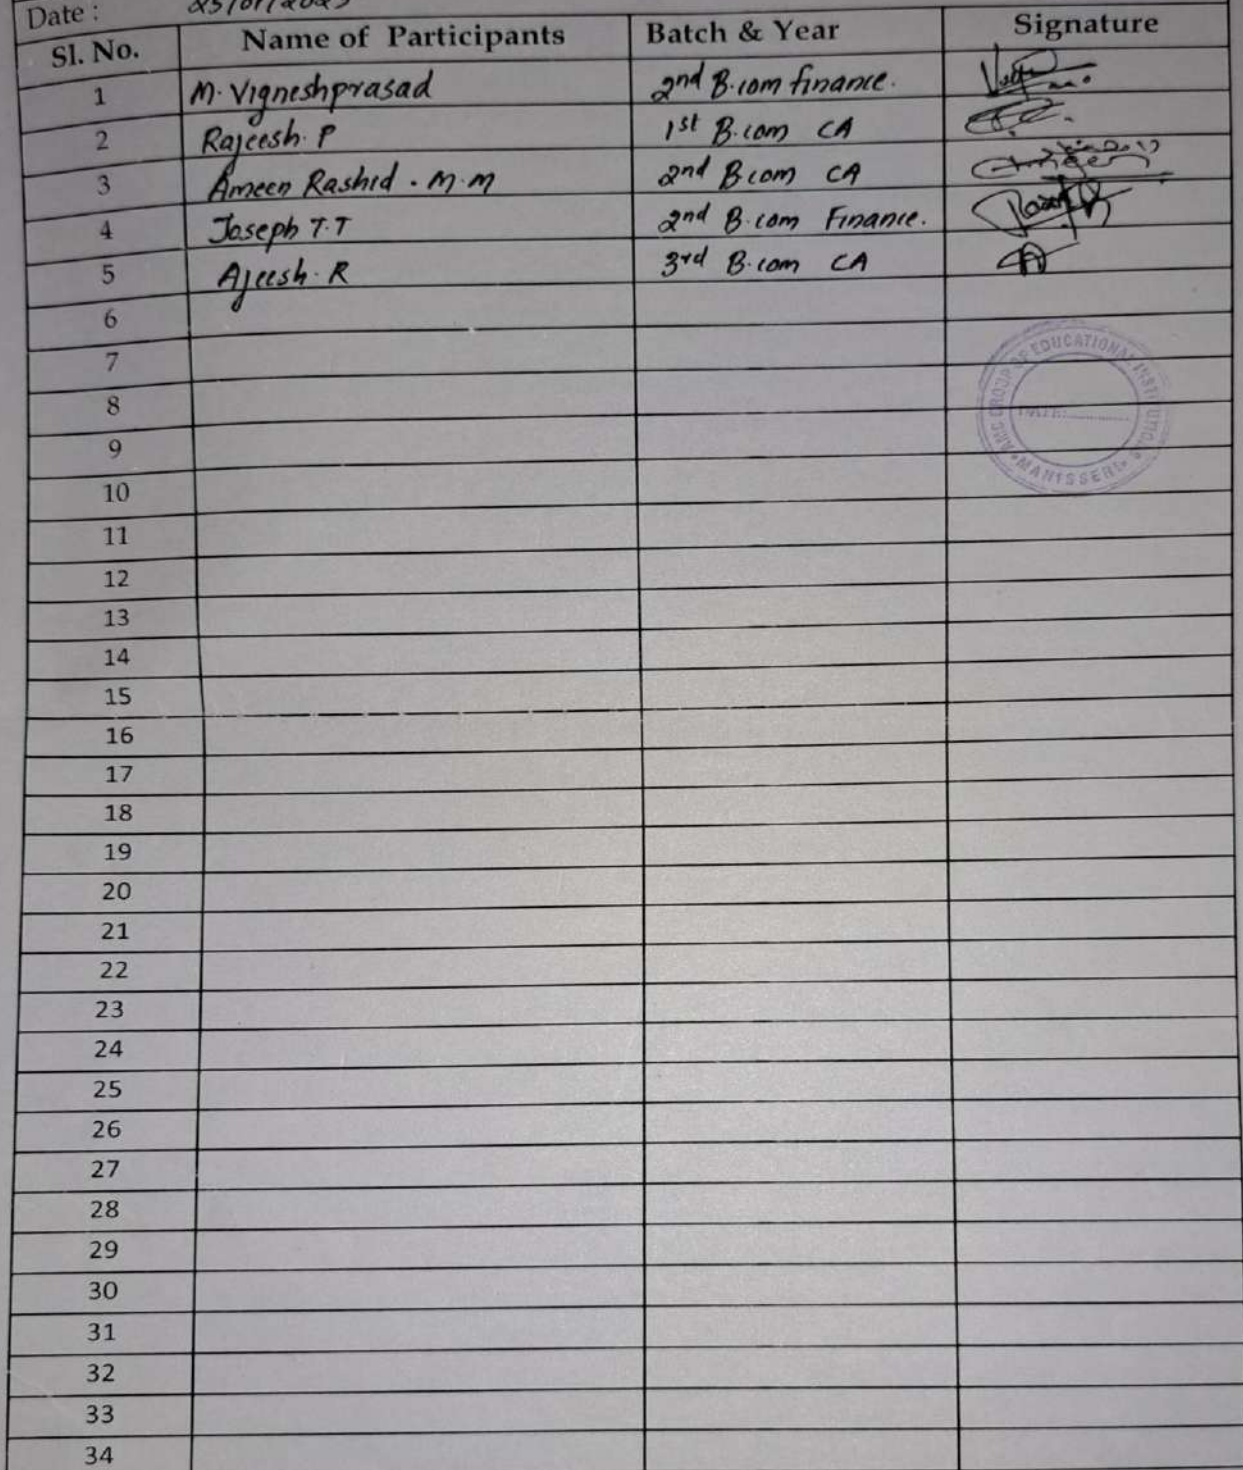 Date : 25/01/2023
Sl. No. Name of Participants Batch & Year Signature
1 M. Vigneshprasad 2nd B.com finance.
2 Rajeesh. P 1st B.com CA
3 Ameen Rashid . M.M 2nd B.com CA
4 Joseph T.T 2nd B.com Finance.
5 Ajeesh. R 3rd B.com CA
6
7
8
9
10
11
12
13
14
15
16
17
18
19
20
21
22
23
24
25
26
27
28
29
30
31
32
33
34
GROUP OF EDUCATIONAL INSTITUTIONS
DATE:
MANISSERI